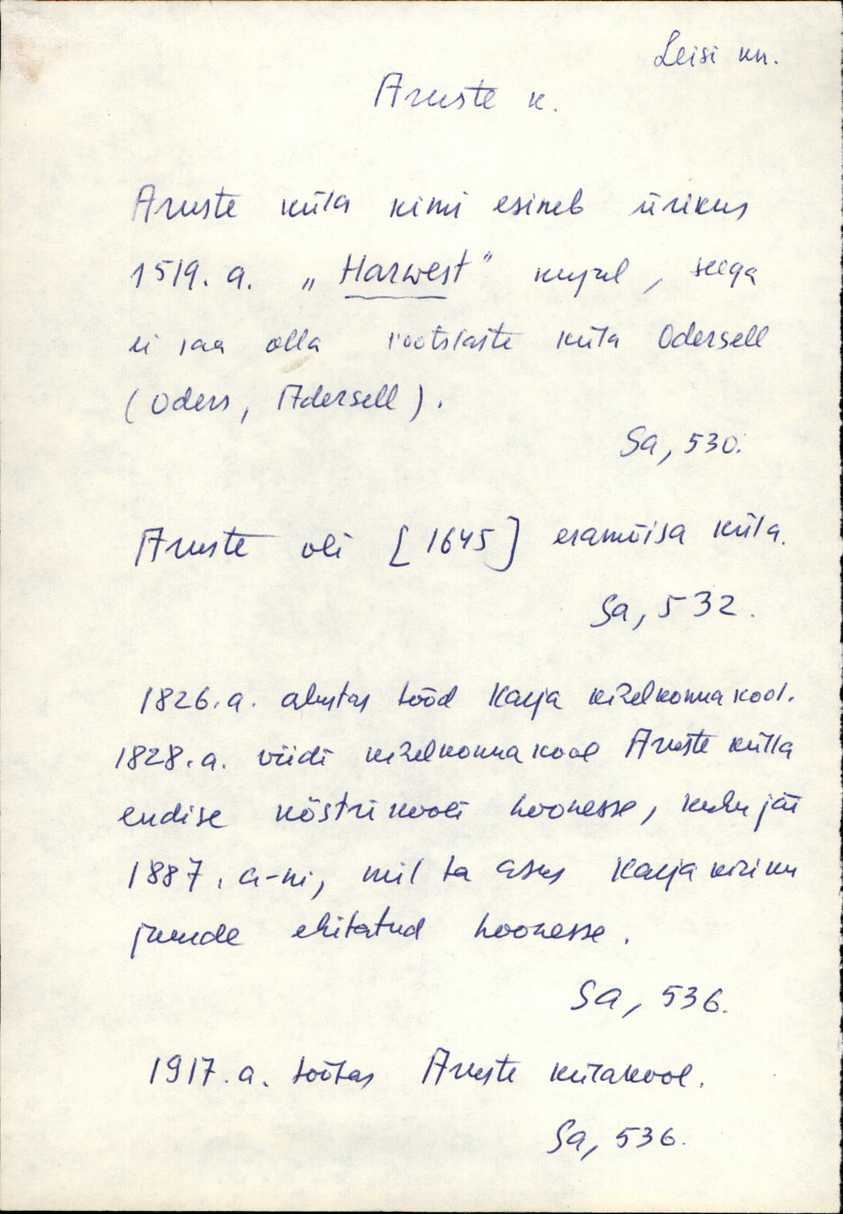 Leisi kn.
Aruste k.
Aruste küla nimi esineb ürikus
1519. a. „Harwest" kujul, seega
ei saa olla rootslaste küla Odersell
(Oders, Adersell).
Sa, 530.
Aruste oli [1645] eramõisa küla.
Sa, 532.
1826. a. alustas tööd Karja kihelkonnakool.
1828. a. viidi kihelkonnakool Aruste külla
endise köstrikooli hoonesse, kuhu jäi
1887. a-ni, mil ta asus Karja kiriku
juurde ehitatud hoonesse.
Sa, 536.
1917. a. töötas Aruste külakool.
Sa, 536.